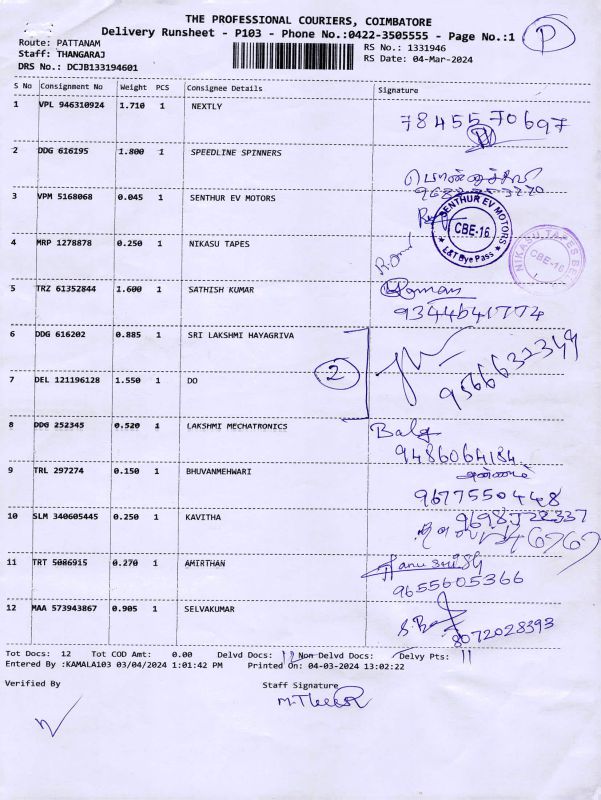 THE PROFESSIONAL COURIERS, COIMBATORE
Delivery Runsheet - P103 - Phone No.:0422-3505555 - Page No.:1
P
Route: PATTANAM
RS No.: 1331946
Staff: THANGARAJ
RS Date: 04-Mar-2024
DRS No.: DCJB133194601
S No Consignment No Weight PCS Consignee Details Signature
1 VPL 946310924 1.710 1 NEXTLY
7845570697
2 DDG 616195 1.800 1 SPEEDLINE SPINNERS
3 VPM 5168068 0.045 1 SENTHUR EV MOTORS
SENTHUR EV MOTORS
CBE-16
L&T Bye Pass
4 MRP 1278878 0.250 1 NIKASU TAPES
NIKASU TAPES
CBE-16
5 TRZ 61352844 1.600 1 SATHISH KUMAR
9344641774
6 DDG 616202 0.885 1 SRI LAKSHMI HAYAGRIVA
2
9566632349
7 DEL 121196128 1.550 1 DO
8 DDG 252345 0.520 1 LAKSHMI MECHATRONICS
9486064184
9 TRL 297274 0.150 1 BHUVANMEHWARI
9677550448
10 SLM 340605445 0.250 1 KAVITHA
11 TRT 5086915 0.270 1 AMIRTHAN
9655605366
12 MAA 573943867 0.905 1 SELVAKUMAR
8072028393
Tot Docs: 12 Tot COD Amt: 0.00 Delvd Docs: 12 Non Delvd Docs: Delvy Pts: 11
Entered By :KAMALA103 03/04/2024 1:01:42 PM Printed On: 04-03-2024 13:02:22
Verified By Staff Signature